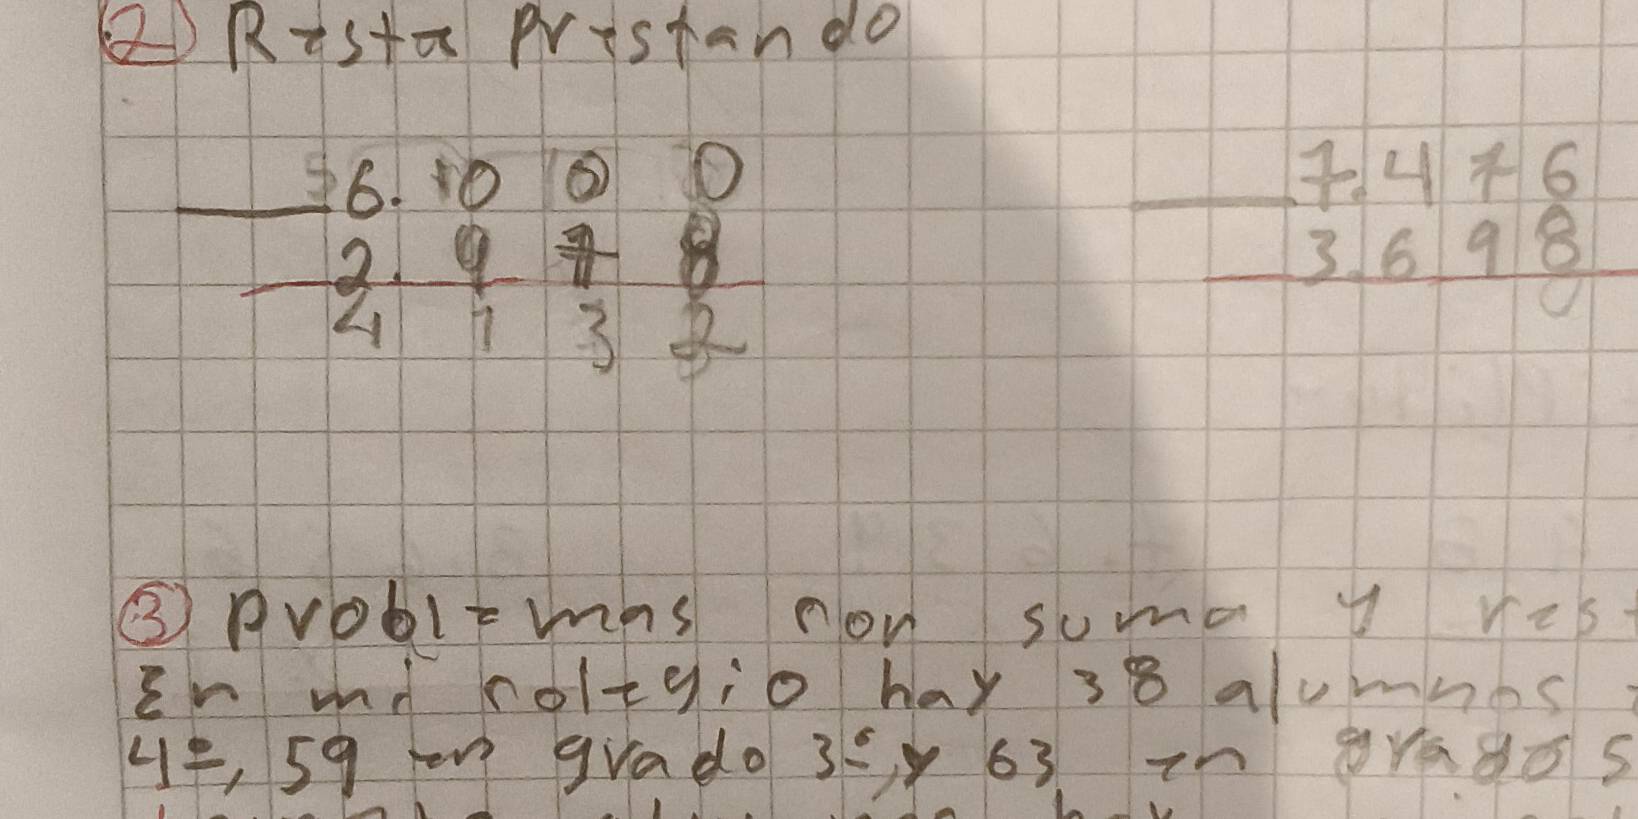 2 Resta prestando
6.000 7.476
2.978 3.698
4 1 3 2
3 problemas con suma y rest
En mi colegio hay 38 alumnos
4º, 59 en grado 3º, y 63 en grados